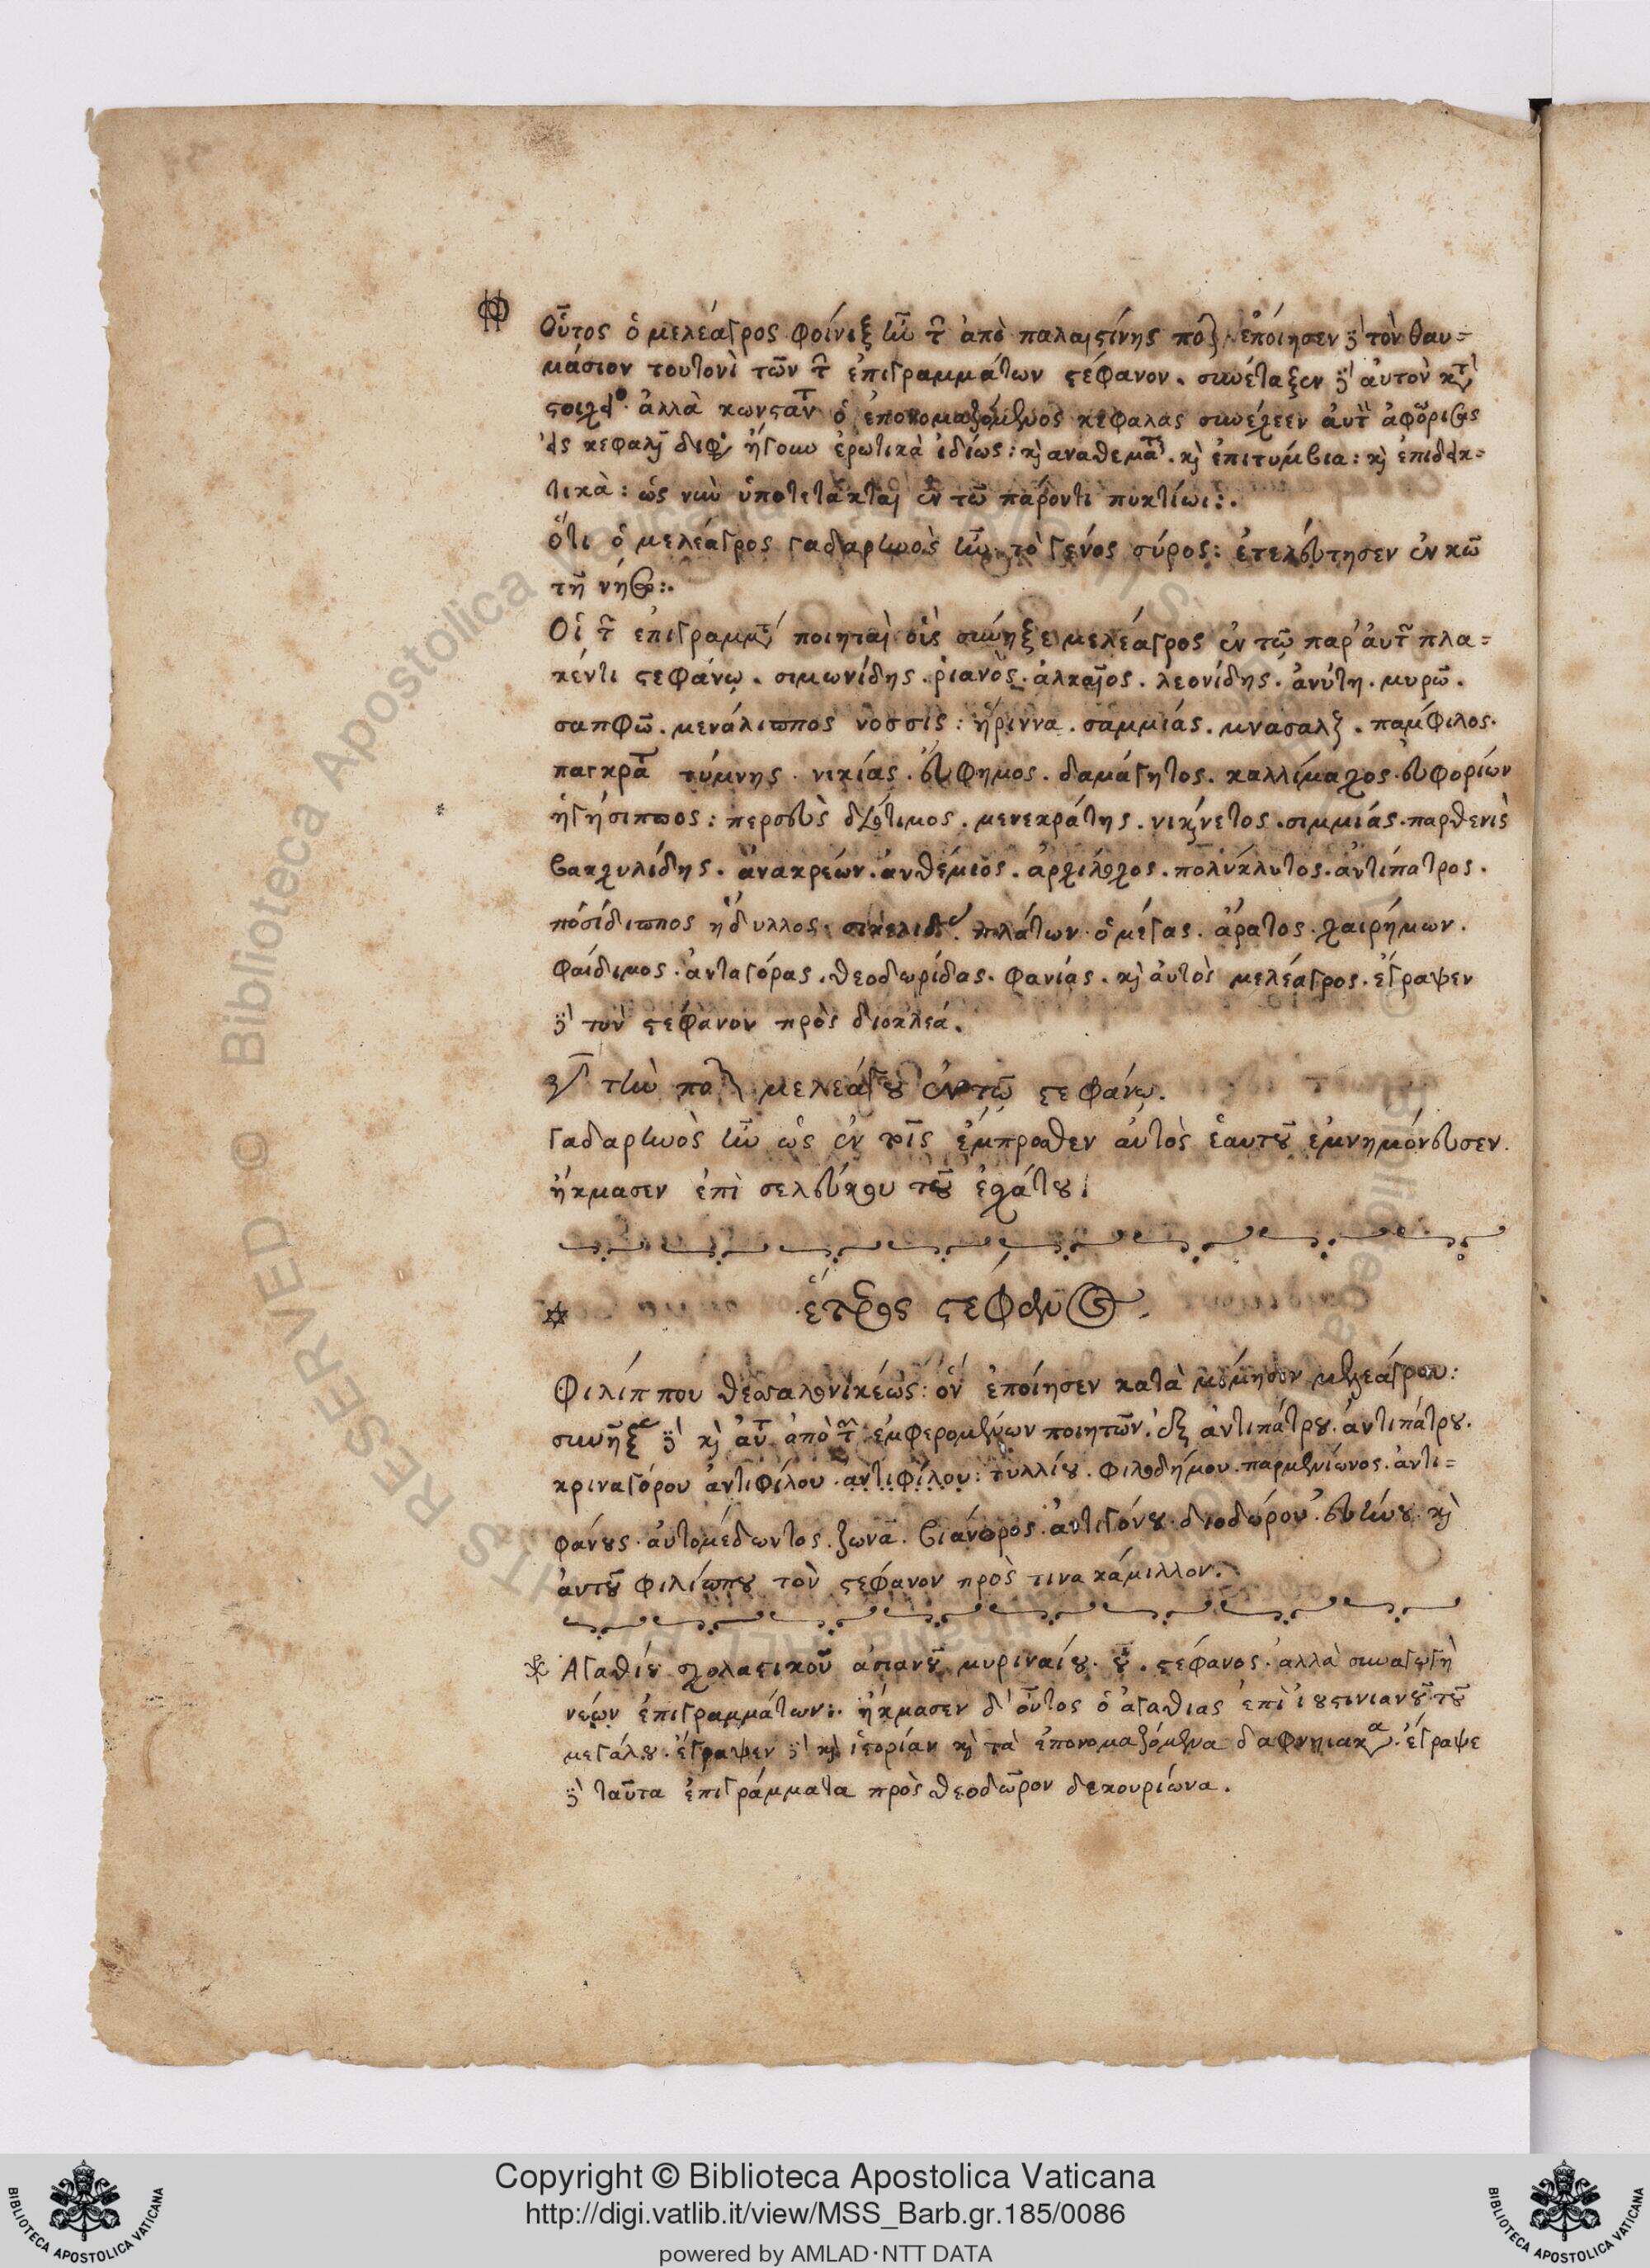 Οὗτος ὁ μελέαγρος φοίνιξ ἦν τ̑ ἀπὸ παλαιστίνης πόλ ἐποίησεν δὲ τὸν θαυ=
μάσιον τουτονὶ τῶν τ̑ ἐπιγραμμάτων στέφανον. συνέταξεν δὲ αὐτὸν κτ
στοιχεῖο· ἀλλὰ κωνσταν ὁ ἐπονομαζόμενος κεφαλας συνέχεεν αὐτ ἀφόρισας
εἰς κεφαλ διφ ἤγουν ἐρωτικὰ ἰδίως: καὶ αναθεματ. καὶ ἐπιτύμβια: καὶ ἐπιδεικ=
τικὰ: ὡς νῦν ὑποτετάκται ἐν τῶ παρόντι πυκτίωι:.
ὅτι ὁ μελέαγρος γαδαρηνὸς ἦν τὸ γένος σύρος: ἐτελεύτησεν ἐν κῶ
τῆ νήσω:.
Οἱ τ̑ ἐπιγραμμτ ποιηταὶ οἷς συνῆξε μελέαγρος ἐν τῶ παρ' αὐτ πλα=
κέντι στεφάνῳ. σιμωνίδης. ῥιανὸς. ἀλκαῖος. λεονίδης. ἀνύτη. μυρῶ.
σαπφῶ. μενάλιππος νοσσὶς: ἤριννα. σαμμιάς. μνασαλξ. παμφιλος.
παγκρα τύμνης. νικίας. εὔφημος. δαμάγητος. καλλίμαχος. εὐφορίων
ἡγήσιππος: περσεὺς διότιμος. μενεκράτης. νικαίνετος. σιμμιάς. παρθενὶς
βακχυλίδης. ἀνακρέων. ἀνθέμιος. ἀρχιλοχος. πολύκλυτος. ἀντίπατρος.
πόσίδιππος ἡδυλλος. σικελιδ. πλάτων ὁ μέγας. ἄρατος. χαιρήμων.
φαίδιμος. ἀνταγόρας. θεοδωρίδας. φανίας. καὶ ἀυτὸς μελέαγρος. ἔγραψεν
δὲ τὸν στεφάνον πρὸς διοκλεά.
τὴν πολ μελεάγρου ἐν τῶ στεφάνω.
γαδαρηνὸς ἦν ὡς ἐν τοῖς ἔμπροσθεν ἀυτὸς ἑαυτοῦ ἐμνημόνευσεν.
ἤκμασεν ἐπὶ σελεύκου τοῦ ἐσχάτου.
ἕτερος στέφανος.
Φιλίππου θεσσαλονικέως: ὃν ἐποίησεν κατὰ μίμησιν μελεάγρου:
συνῆξε δὲ καὶ ἀυτ ἀπὸ τ̑ ἐμφερομένων ποιητῶν. ἐξ ἀντιπάτρου. ἀντιπάτρου.
κριναγόρου ἀντιφίλου. ἀντιφίλου: τυλλίου. φιλοδήμου. παρμενίωνος. ἀντι=
φάνους. ἀυτομέδωντος. ζωνᾶ. βιάνορος. ἀντιγόνου. διοδώρου. εὐήνου. καὶ
ἀυτοῦ φιλίππου τὸν στεφάνον πρὸς τινα κάμιλλον.
Αγαθίου σχολαστικοῦ ἀσιανοῦ μυριναίου. οὐ. στέφανος. ἀλλὰ συναγωγὴ
νέων ἐπιγραμμάτων:. ἤκμασεν δ' οὗτος ὁ ἀγαθιας ἐπὶ ἰουστινιανοῦ τοῦ
μεγάλου. ἔγραψεν δὲ καὶ ἱστορίαν καὶ τὰ ἐπονομαζόμενα δαφνιακα. ἔγραψε
δὲ ταῦτα ἐπιγράμματα πρὸς θεοδῶρον δεκουρίωνα.
RESERVED © Biblioteca Apostolica Vaticana
Copyright © Biblioteca Apostolica Vaticana
http://digi.vatlib.it/view/MSS_Barb.gr.185/0086
powered by AMLAD·NTT DATA
BIBLIOTECA APOSTOLICA VATICANA
BIBLIOTECA APOSTOLICA VATICANA